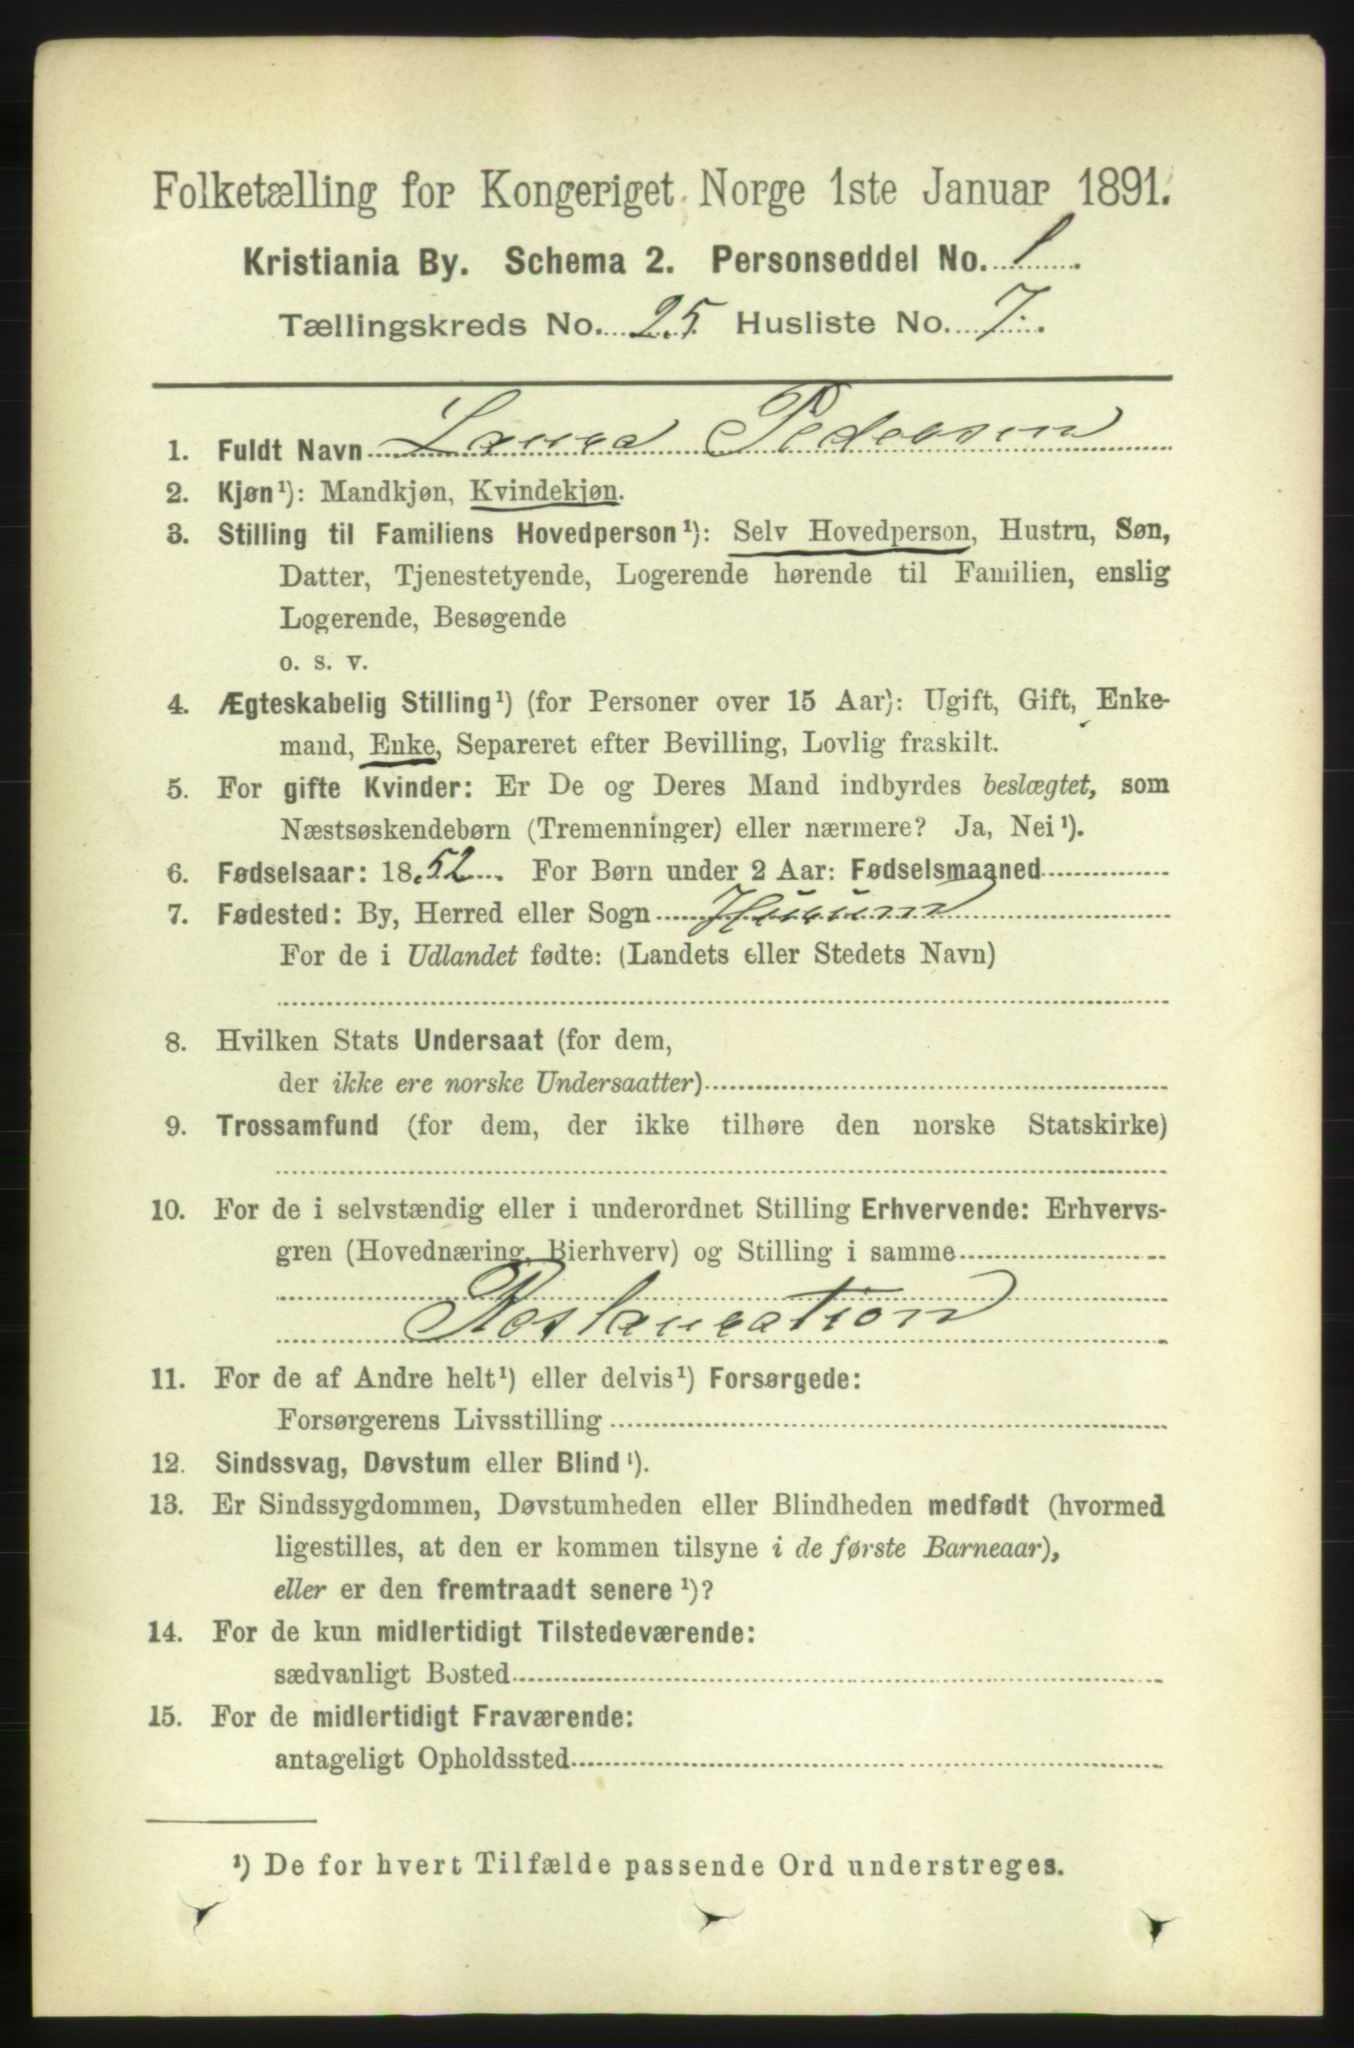 Folketælling for Kongeriget Norge 1ste Januar 1891.
Kristiania By. Schema 2. Personseddel No. 1.
Tællingskreds No. 25. Husliste No. 7.
1. Fuldt Navn Laura Pedersen
2. Kjøn¹): Mandkjøn, Kvindekjøn.
3. Stilling til Familiens Hovedperson¹): Selv Hovedperson, Hustru, Søn,
Datter, Tjenestetyende, Logerende hørende til Familien, enslig
Logerende, Besøgende
o. s. v.
4. Ægteskabelig Stilling¹) (for Personer over 15 Aar): Ugift, Gift, Enke-
mand, Enke, Separeret efter Bevilling, Lovlig fraskilt.
5. For gifte Kvinder: Er De og Deres Mand indbyrdes beslægtet, som
Næstsøskendebørn (Tremenninger) eller nærmere? Ja, Nei¹).
6. Fødselsaar: 1852. For Børn under 2 Aar: Fødselsmaaned
7. Fødested: By, Herred eller Sogn Hurum
For de i Udlandet fødte: (Landets eller Stedets Navn)
8. Hvilken Stats Undersaat (for dem,
der ikke ere norske Undersaatter)
9. Trossamfund (for dem, der ikke tilhøre den norske Statskirke)
10. For de i selvstændig eller i underordnet Stilling Erhvervende: Erhvervs-
gren (Hovednæring, Bierhverv) og Stilling i samme
Restauration
11. For de af Andre helt¹) eller delvis¹) Forsørgede:
Forsørgerens Livsstilling
12. Sindssvag, Døvstum eller Blind¹).
13. Er Sindssygdommen, Døvstumheden eller Blindheden medfødt (hvormed
ligestilles, at den er kommen tilsyne i de første Barneaar),
eller er den fremtraadt senere¹)?
14. For de kun midlertidigt Tilstedeværende:
sædvanligt Bosted
15. For de midlertidigt Fraværende:
antageligt Opholdssted
¹) De for hvert Tilfælde passende Ord understreges.